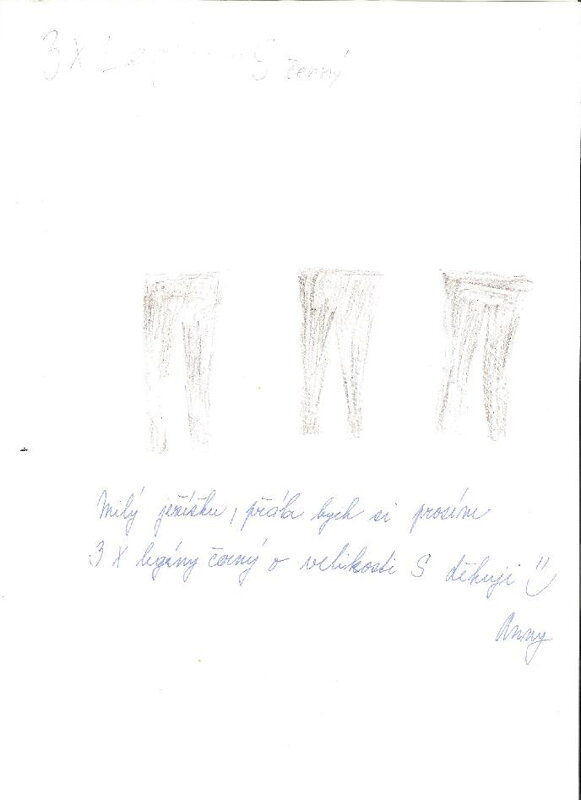 3 X S černý
Milý ježíšku, přála bych si prosím
3 X legány černý o velikosti S děkuji
Anny